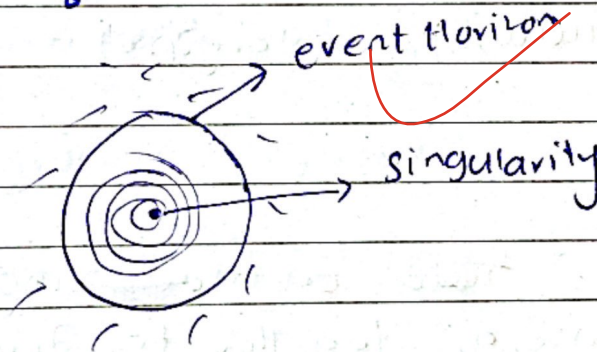 event Horizon
singularity